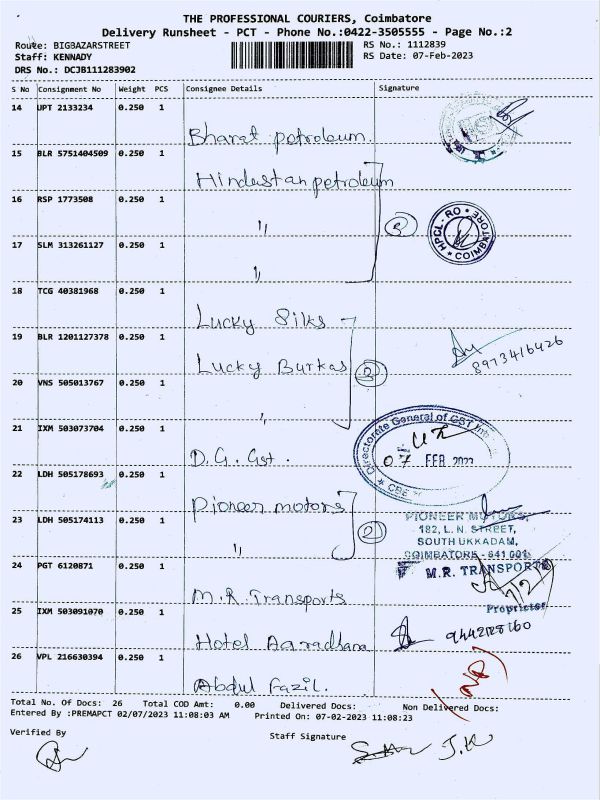 THE PROFESSIONAL COURIERS, Coimbatore
Delivery Runsheet - PCT - Phone No.:0422-3505555 - Page No.:2
Route: BIGBAZARSTREET
Staff: KENNADY
DRS No.: DCJB111283902
RS No.: 1112839
RS Date: 07-Feb-2023
S No Consignment No Weight PCS Consignee Details Signature
14 UPT 2133234 0.250 1
Bharat petroleum.
15 BLR 5751404509 0.250 1
Hindustan petroleum
16 RSP 1773508 0.250 1
〃
3
HPCL - RO
COIMBATORE
17 SLM 313261127 0.250 1
〃
18 TCG 40381968 0.250 1
Lucky Silks
19 BLR 1201127378 0.250 1
Lucky Burkas
8973416426
20 VNS 505013767 0.250 1
〃
21 IXM 503073704 0.250 1
D.G. Gst.
Directorate General of GST
07 FEB
CBE
22 LDH 505178693 0.250 1
Pioneer motors
23 LDH 505174113 0.250 1
〃
2
PIONEER MOTORS,
182, L. N. STREET,
SOUTH UKKADAM,
COIMBATORE - 641 001
24 PGT 6120871 0.250 1
M.R. Transports
M.R. TRANSPORTS
Proprietor
25 IXM 503091070 0.250 1
Hotel Aaradhana
9442128160
26 VPL 216630394 0.250 1
Abdul Fazil.
Total No. Of Docs: 26 Total COD Amt: 0.00 Delivered Docs: Non Delivered Docs:
Entered By :PREMAPCT 02/07/2023 11:08:03 AM Printed On: 07-02-2023 11:08:23
Verified By
Staff Signature